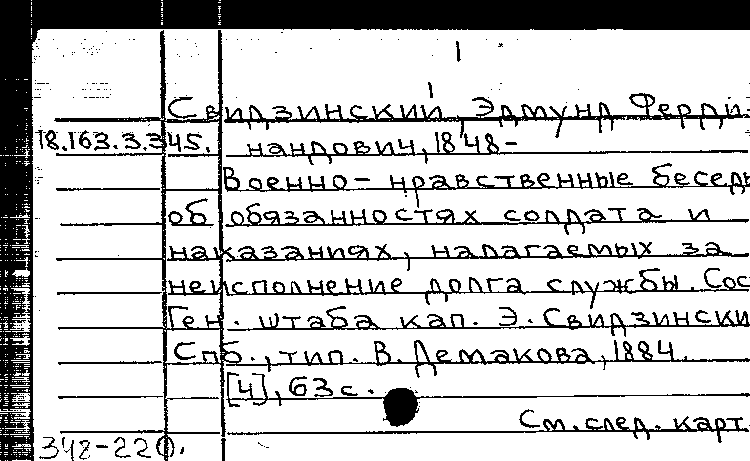 Свидзинский, Эдмунд Ферди-
18.163.3.345. нандович, 1848-
Военно-нравственные бесед
об обязанностях солдата и
наказаниях, налагаемых за
неисполнение долга службы. Сос
Ген. штаба кап. Э. Свидзински
Спб., тип. В. Демакова, 1884.
[4], 63 с.
См. след. карт
348-220.